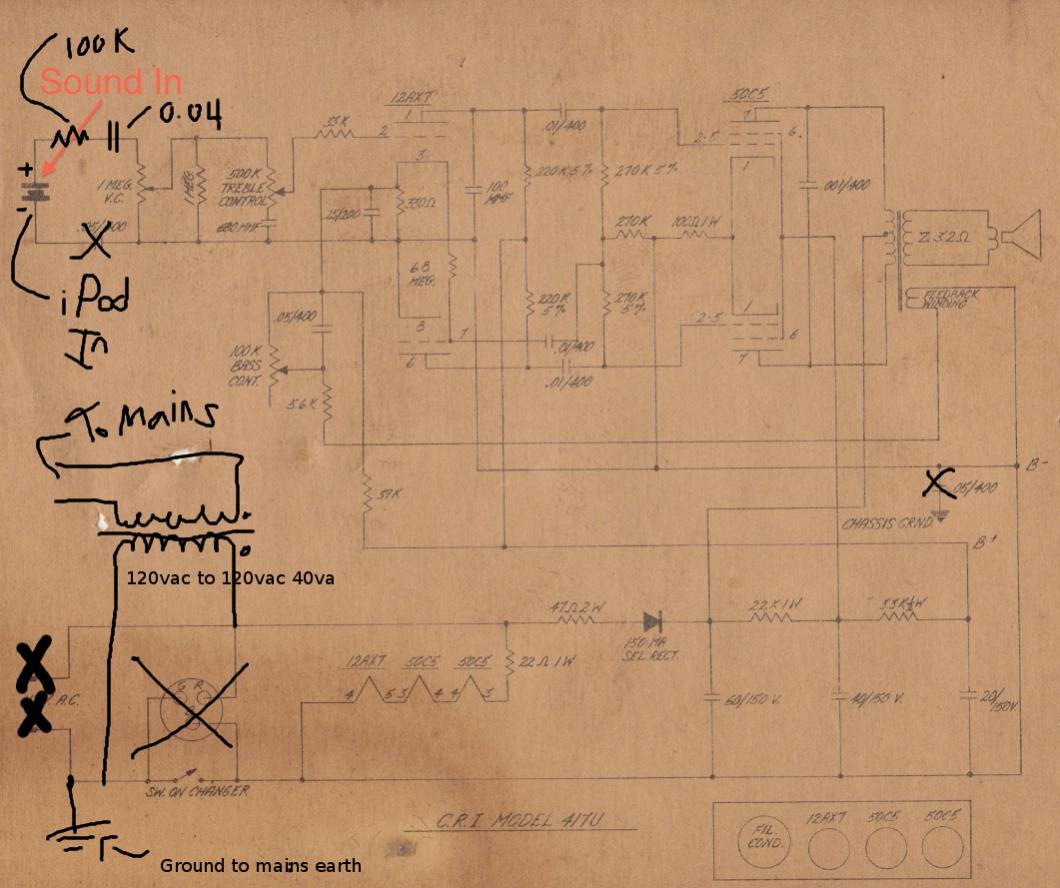 100K
Sound In
0.04
12AX7
50C5
1
7
33K
2
.01/400
2-5
6
3
1
+
1 MEG.
V.C.
1 MEG.
500K
TREBLE
CONTROL
.25/200
330Ω
100
MMF
220K 5%
270K 5%
.001/400
-
.05/400
X
680 MMF
6.8
MEG.
270K
100Ω 1W
Z 3.2Ω
iPod
In
220K
5%
270K
5%
FEEDBACK
WINDING
.05/400
8
7
1
2-5
6
100K
BASS
CONT.
6
.01/400
7
.01/400
5.6K
To Mains
B-
39K
X
.05/400
CHASSIS GRND.
B+
120vac to 120vac 40va
47Ω 2W
2.2K 1W
3.3K ½W
150 MA
SEL. RECT.
12AX7
50C5
50C5
22Ω 1W
4
5
3
4
4
3
X
X
A.C.
G
R
60/150 V.
40/150 V.
20/
150V.
SW. ON CHANGER
C.R.I. MODEL 417U
FIL.
COND.
12AX7
50C5
50C5
Ground to mains earth